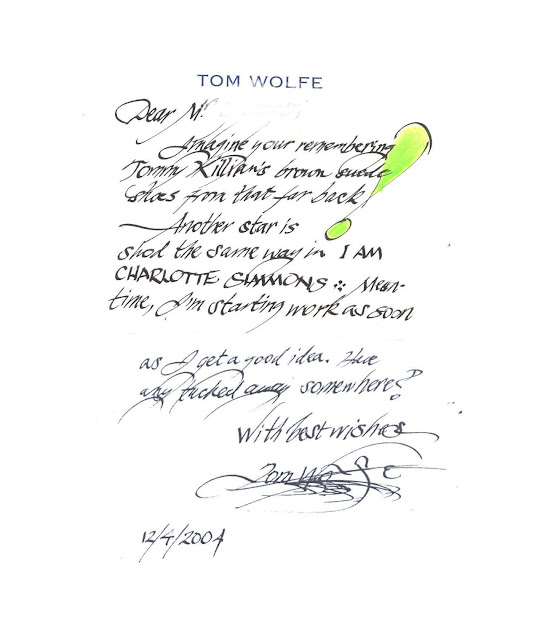 TOM WOLFE
Dear Mr.
Imagine your remembering
Tommy Killian's brown suede
shoes from that far back!
— Another star is
shod the same way in I AM
CHARLOTTE SIMMONS Mean-
time, I'm starting work as soon
as I get a good idea. Have
any tucked away somewhere?
With best wishes
Tom Wolfe
12/4/2004